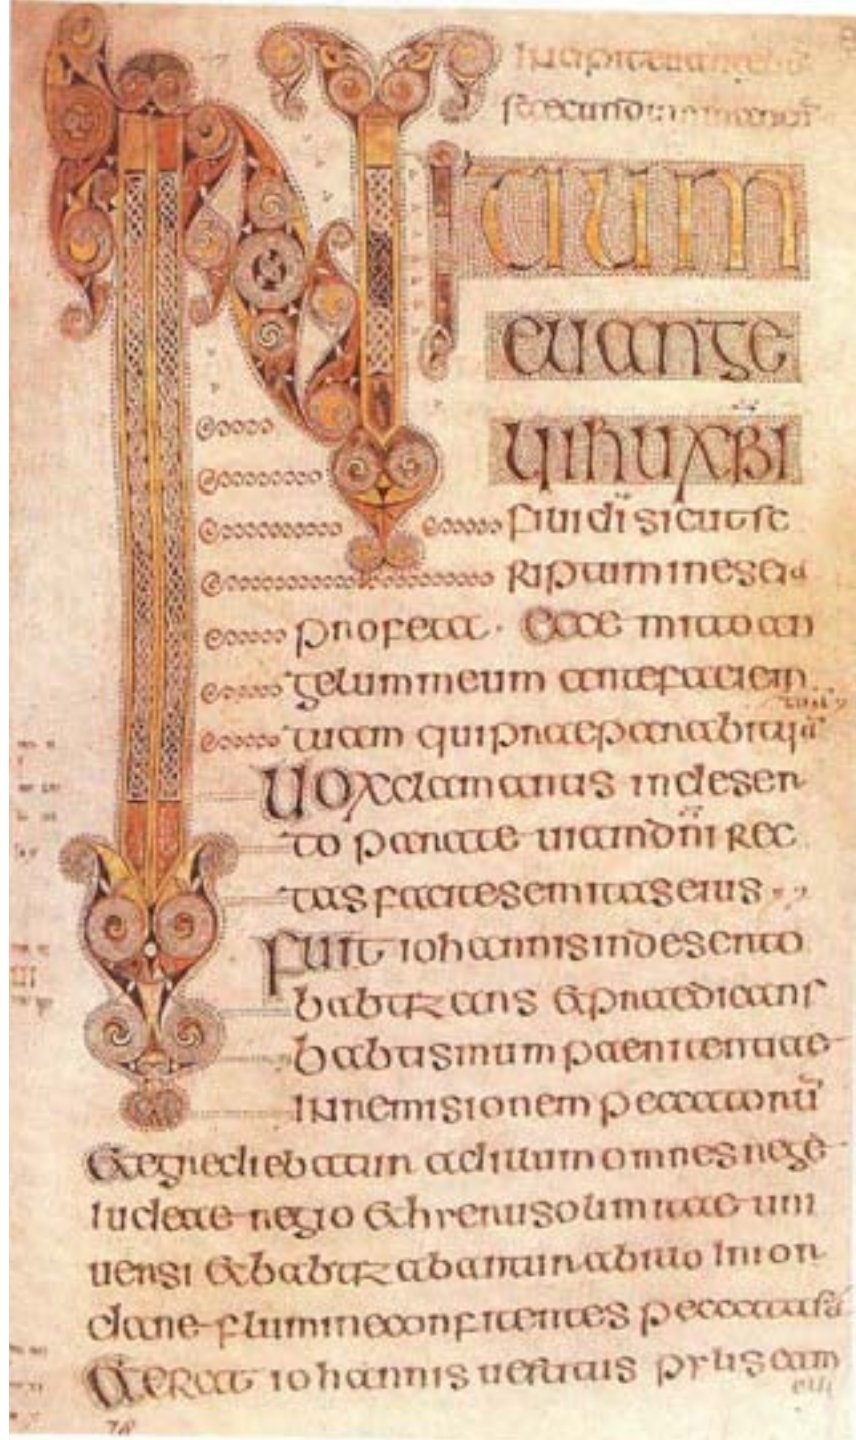 INITIUM
euange
lii ihu xpi
fili di sicut sc
riptum in esaia
profeta · Ecce mitto an
gelum meum ante faciem
tuam qui praeparabit uia
tua
Uox clamantis in deser
to parate uiam dni rec
tas facite semitas eius
Fuit iohannis in deserto
babtizans & praedicans
babtismum paenitentiae
in remisionem peccatoru
& egrediebatur ad illum omnes
iudeae regio & hierusolimitae uni
uersi & babtizabantur ab illo in ior
dane flumine confitentes peccata sua
& erat iohannis uestitus pylis cam
eli